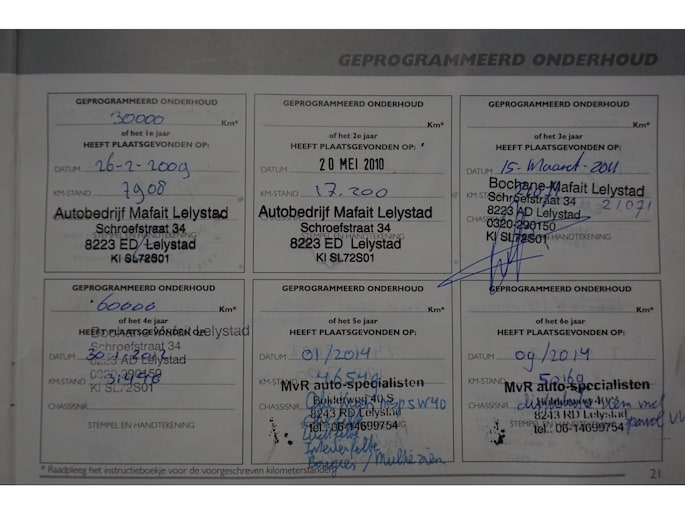 GEPROGRAMMEERD ONDERHOUD
GEPROGRAMMEERD ONDERHOUD
30000 Km*
of het 1e jaar
HEEFT PLAATSGEVONDEN OP:
DATUM 26-2-2009
KM-STAND 7908
Autobedrijf Mafait Lelystad
Schroefstraat 34
STEMPEL EN HANDTEKENING
8223 ED Lelystad
KI SL72S01
GEPROGRAMMEERD ONDERHOUD
Km*
of het 2e jaar
HEEFT PLAATSGEVONDEN OP:
DATUM 20 MEI 2010
KM-STAND 17.200
Autobedrijf Mafait Lelystad
Schroefstraat 34
STEMPEL EN HANDTEKENING
8223 ED Lelystad
KI SL72S01
GEPROGRAMMEERD ONDERHOUD
Km*
of het 3e jaar
HEEFT PLAATSGEVONDEN OP:
DATUM 15-Maart-2011
Bochane Mafait Lelystad
KM-STAND 21.071
Schroefstraat 34
8223 AD Lelystad
0320-290150
KI SL72S01
GEPROGRAMMEERD ONDERHOUD
60000 Km*
of het 4e jaar
HEEFT PLAATSGEVONDEN OP:
Bochane Mafait Lelystad
Schroefstraat 34
DATUM 30-1-2012
8223 AD Lelystad
KM-STAND
0320-290150
KI SL72S01
CHASSISNR.
STEMPEL EN HANDTEKENING
GEPROGRAMMEERD ONDERHOUD
Km*
of het 5e jaar
HEEFT PLAATSGEVONDEN OP:
DATUM 01/2014
KM-STAND
MvR auto-specialisten
CHASSISNR.
8243 RD Lelystad
tel.: 06-14699754
Interieurfilter
Bougies
GEPROGRAMMEERD ONDERHOUD
Km*
of het 6e jaar
HEEFT PLAATSGEVONDEN OP:
DATUM 09/2014
KM-STAND 50169
MvR auto-specialisten
CHASSISNR.
8243 RD Lelystad
tel.: 06-14699754
* Raadpleeg het instructieboekje voor de voorgeschreven kilometerstanden
21